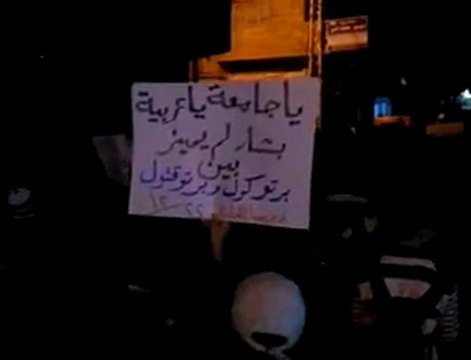 يا جامعة يا عربية
بشار لم يميز
بين
برتوكول وبرتوقتول
٢٢ ١٢